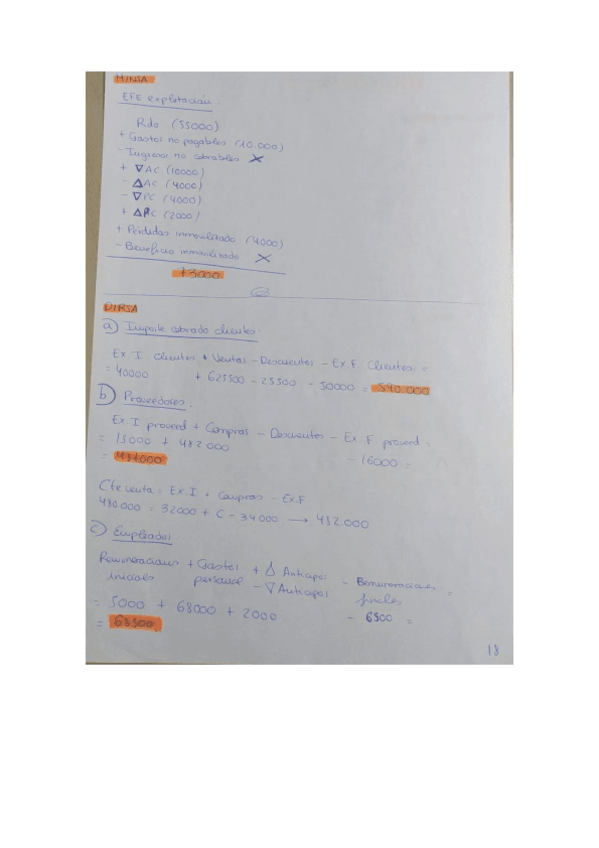 MINSA
EFE explotación:
Rdo (55000)
+ Gastos no pagables (10.000)
- Ingresos no cobrables X
+ ∇AC (10000)
- ΔAC (4000)
- ∇PC (4000)
+ ΔPC (2000)
+ Pérdidas inmovilizado (4000)
- Beneficio inmovilizado X
73000
DIRSA
a) Importe cobrado clientes:
Ex. I. clientes + Ventas - Descuentos - Ex. F. Clientes =
= 40000 + 625500 - 25500 - 50000 = 590.000
b) Proveedores:
Ex. I proveed + Compras - Descuentos - Ex. F. proveed =
= 15000 + 482000 - 16000 =
= 481.000
Cte venta = Ex. I + Compras - Ex. F
480.000 = 32000 + C - 34000 → 482.000
c) Empleados
Remuneraciones + Gastos + Δ Anticipos - Remuneraciones =
iniciales personal - ∇ Anticipos finales
= 5000 + 68000 + 2000 - 6500 =
= 68500
18